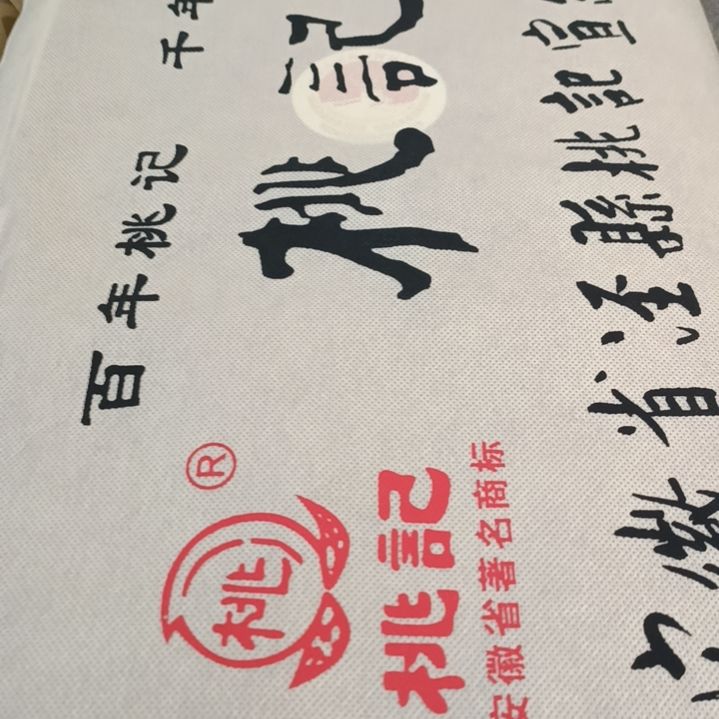 百年桃记 千年
桃記
®
桃
桃記
安徽省著名商标
安徽省泾縣桃記宣